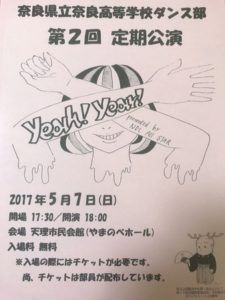 奈良県立奈良高等学校ダンス部
第2回 定期公演
Yeah! Yeah!
presented by
NDC ALL STAR
2017年5月7日(日)
開場 17:30/開演 18:00
会場 天理市民会館(やまのべホール)
入場料 無料
※入場の際にはチケットが必要です。
尚、チケットは部員が配布しています。